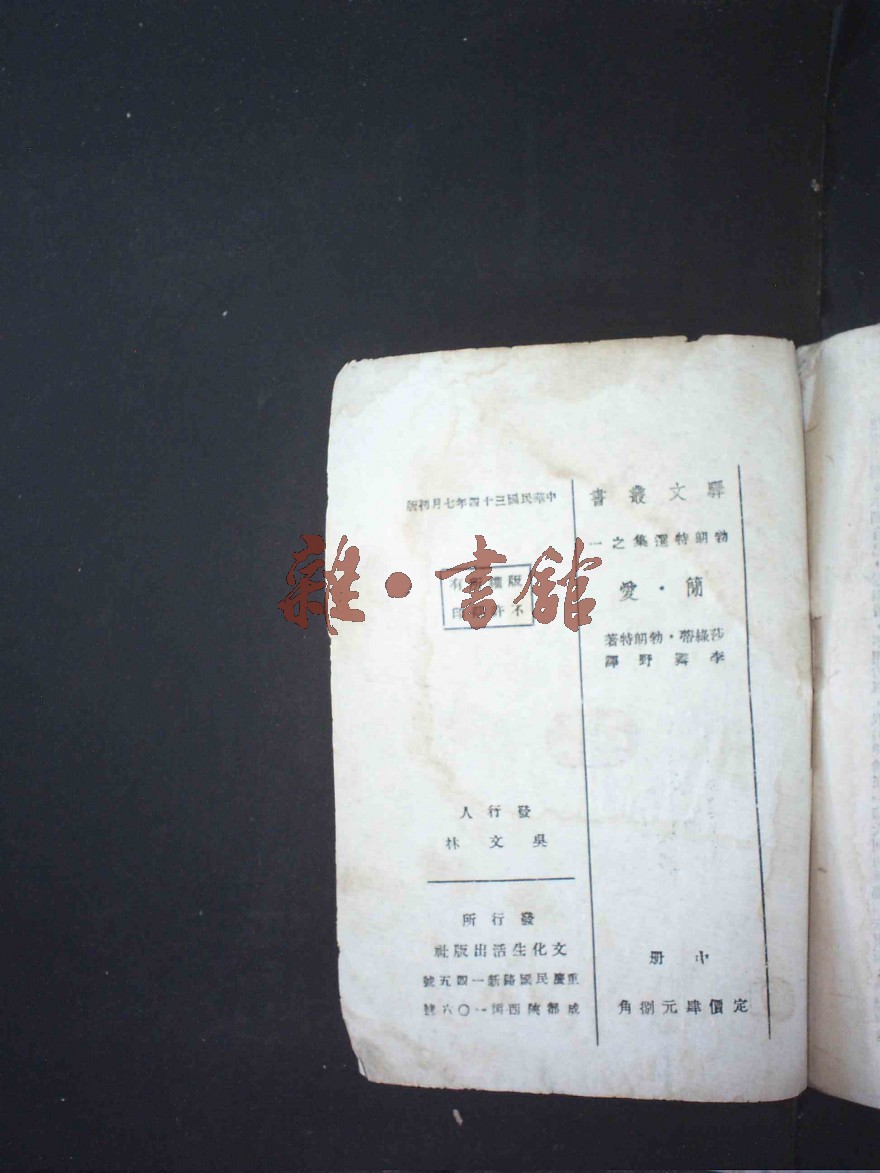 驛文叢書
勃朗特選集之一
簡·愛
莎綠蒂·勃朗特著
李霽野譯
中册
定價肆元捌角
中華民國三十四年七月初版
版權所有
不許翻印
發行人
吳文林
發行所
文化生活出版社
重慶民國路新一四五號
成都陝西街一〇六號
雜·書館